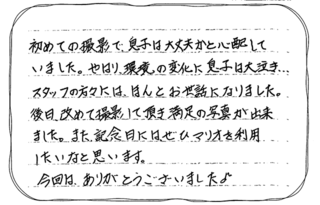 初めての撮影で、息子は大丈夫かと心配して
いました。やはり、環境の変化に息子は大泣き…
スタッフの方々には、ほんとお世話になりました。
後日、改めて撮影して頂き満足の写真が出来
ました。また、記念日にはぜひマリオを利用
したいなと思います。
今回は、ありがとうございました♪